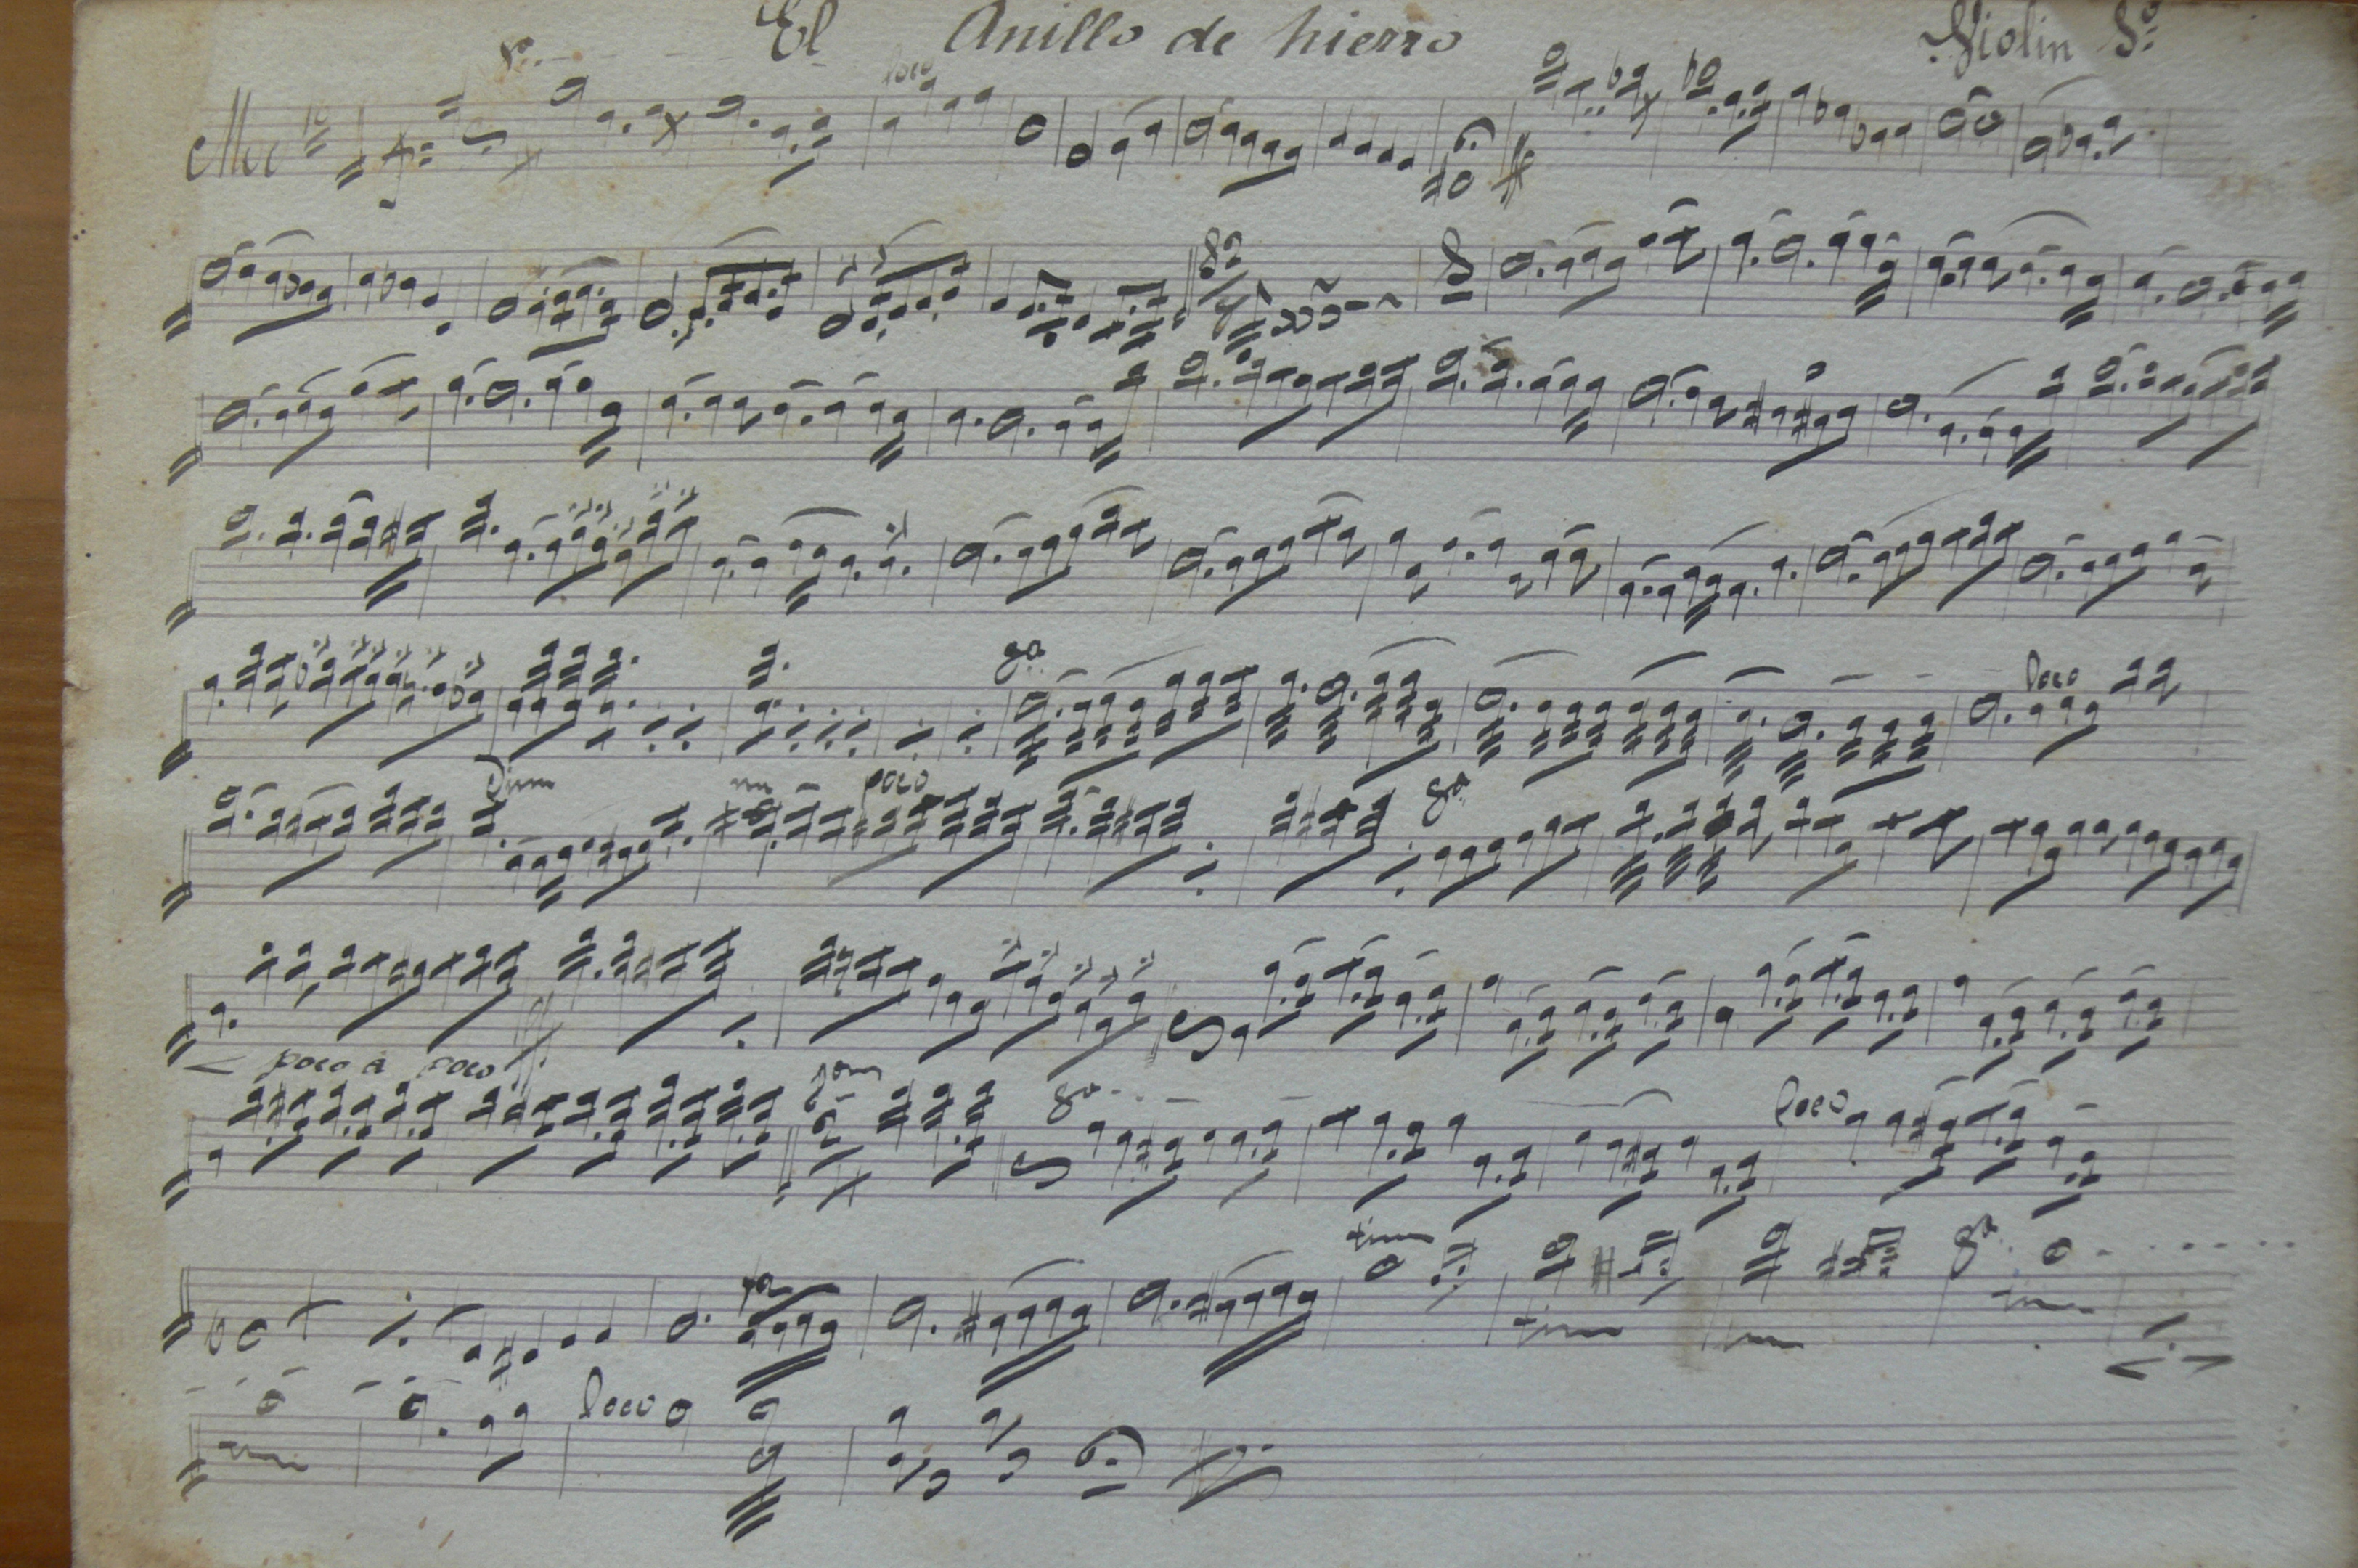 El Anillo de hierro Violin
8a loco
8a
8a loco
Dim poco 8a
poco a poco
8a loco
8a
loco